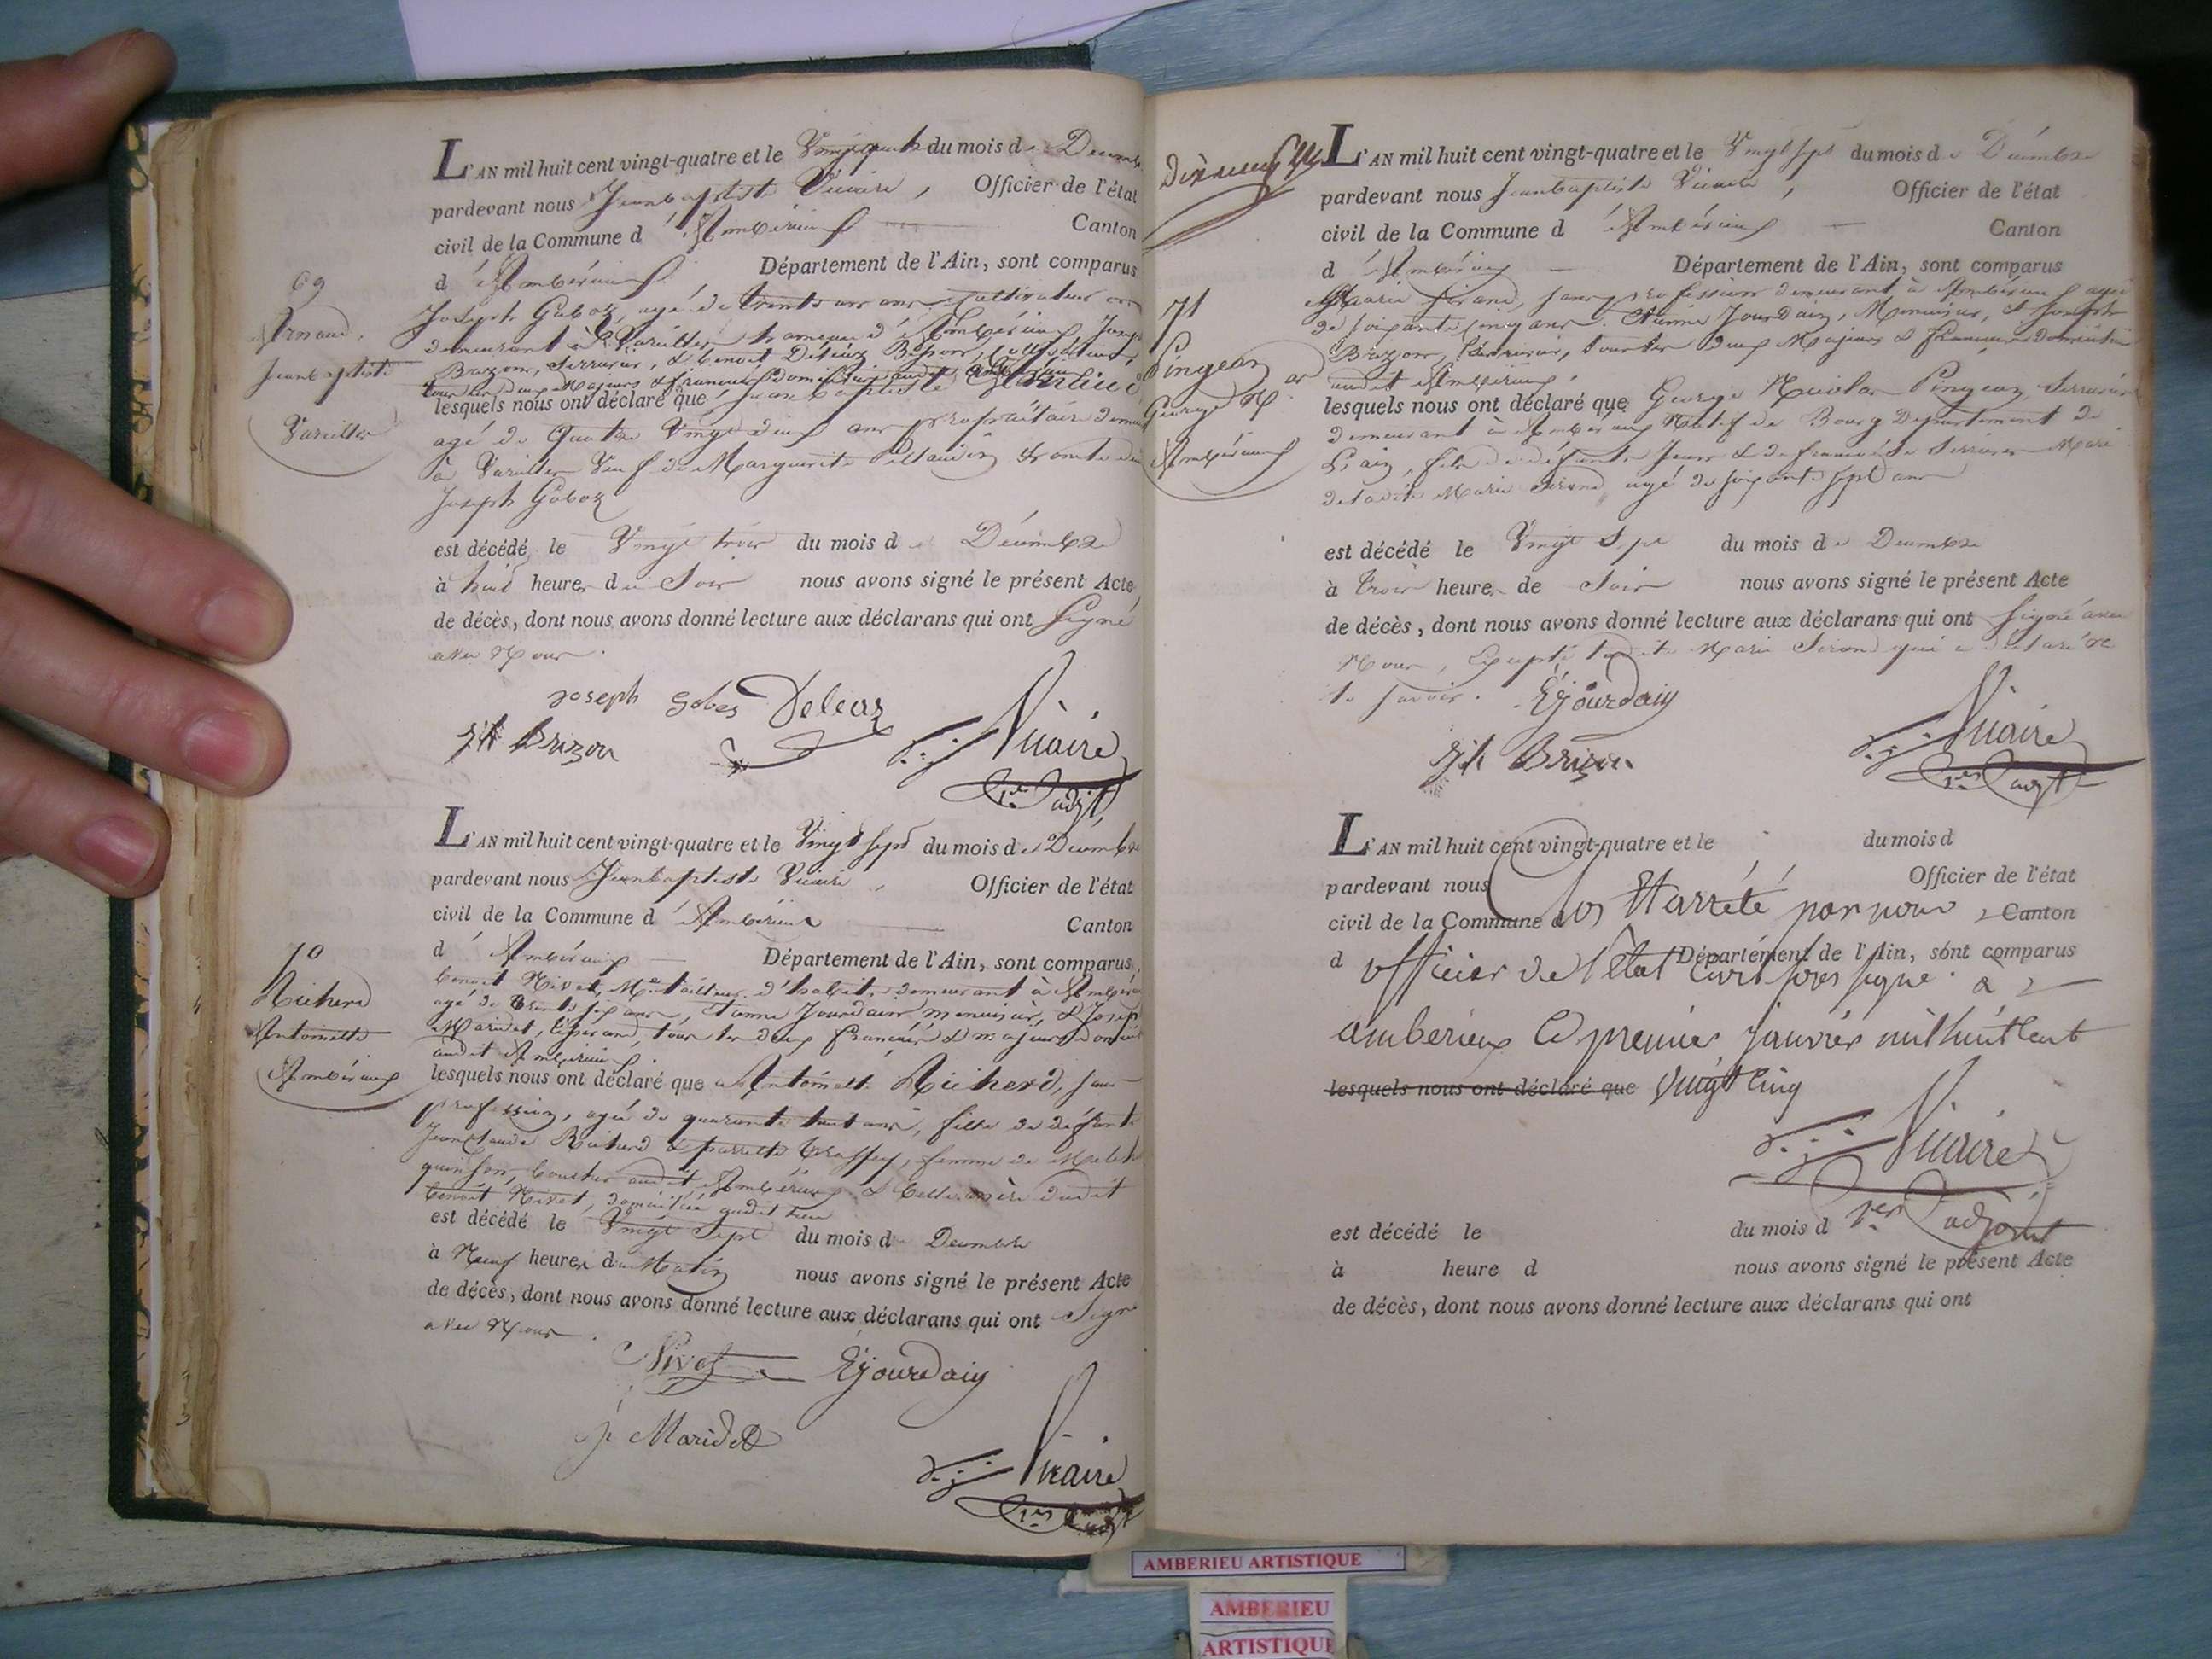 L'AN mil huit cent vingt-quatre et le du mois de Décembre
pardevant nous Jeanbaptiste Vicaire, Officier de l'état
civil de la Commune d'Ambérieux Canton
d'Ambérieux Département de l'Ain, sont comparus
69
Arnaud
Jeanbaptiste
Vareilles
Joseph Goboz, agé de trente ans cultivateur
demeurant à Vareilles hameau d'Ambérieux, Joseph
Brizon, Serrurier, & Benoit
tous les deux Majeurs & francais domiciliés audit Ambérieux
lesquels nous ont déclaré que Jeanbaptiste
agé de Quatre Vingt deux ans propriétaire
à Vareilles Veuf de Marguerite
Joseph Goboz
est décédé le Vingt trois du mois de Décembre
à huit heures du Soir nous avons signé le présent Acte
de décès, dont nous avons donné lecture aux déclarans qui ont Signé
avec Nous.
joseph gobos Deleas
jh Brizon Vicaire
1er adjt
L'AN mil huit cent vingt-quatre et le Vingt sept du mois de Décembre
pardevant nous Jeanbaptiste Vicaire, Officier de l'état
civil de la Commune d'Ambérieux Canton
d'Ambérieux Département de l'Ain, sont comparus
70
Richerd
Antoinette
Ambérieux
Benoit Nivet, Me tailleur d'habits demeurant à
agé de trente six ans, Etienne Jourdain, menuisier, & Joseph
Maridet, tous les deux francais & majeurs
audit Ambérieux.
lesquels nous ont déclaré que Antoinette Richerd, sans
profession, agée de quarante huit ans, fille de défunts
Jeanclaude Richerd & femme de
boucher audit Ambérieux & belle mère dudit
Benoit Nivet, domiciliée audit lieu
est décédé le Vingt Sept du mois de Décembre
à Neuf heures du Matin nous avons signé le présent Acte
de décès, dont nous avons donné lecture aux déclarans qui ont Signé
avec Nous.
Nivet Ejourdain
j Maridet
Vicaire
1er
L'AN mil huit cent vingt-quatre et le Vingt Sept du mois de Décembre
pardevant nous Jeanbaptiste Vicaire, Officier de l'état
civil de la Commune d'Ambérieux Canton
d'Ambérieux Département de l'Ain, sont comparus
71
Pingeon
George N.
Ambérieux
Marie Sirand, sans profession demeurant à Ambérieux agée
de soixante cinq ans. Etienne Jourdain, Menuisier, & Joseph
Brizon, Serrurier, tous les deux Majeurs & francais domiciliés
audit Ambérieux.
lesquels nous ont déclaré que George Nicolas Pingeon, Serrurier
demeurant à Ambérieux Natif de Bourg Département de
L'ain, fils de défunts Jean & de francoise Mari
de ladite Marie Sirand, agé de soixante sept ans
est décédé le Vingt Sept du mois de Décembre
à trois heures de Soir nous avons signé le présent Acte
de décès, dont nous avons donné lecture aux déclarans qui ont Signé avec
Nous, Excepté ladite Marie Sirand qui a déclaré ne
le savoir. Ejourdain
jh Brizon Vicaire
1er adjt
L'AN mil huit cent vingt-quatre et le du mois d
pardevant nous Officier de l'état
civil de la Commune d Clos et arrêté par nous Canton
d officier de l'état civil soussigné Département de l'Ain, sont comparus
à
amberieux le premier janvier mil huit cent
lesquels nous ont déclaré que vingt cinq
Vicaire
1er adjoint
est décédé le du mois d
à heure d nous avons signé le présent Acte
de décès, dont nous avons donné lecture aux déclarans qui ont
AMBERIEU ARTISTIQUE
AMBERIEU
ARTISTIQUE